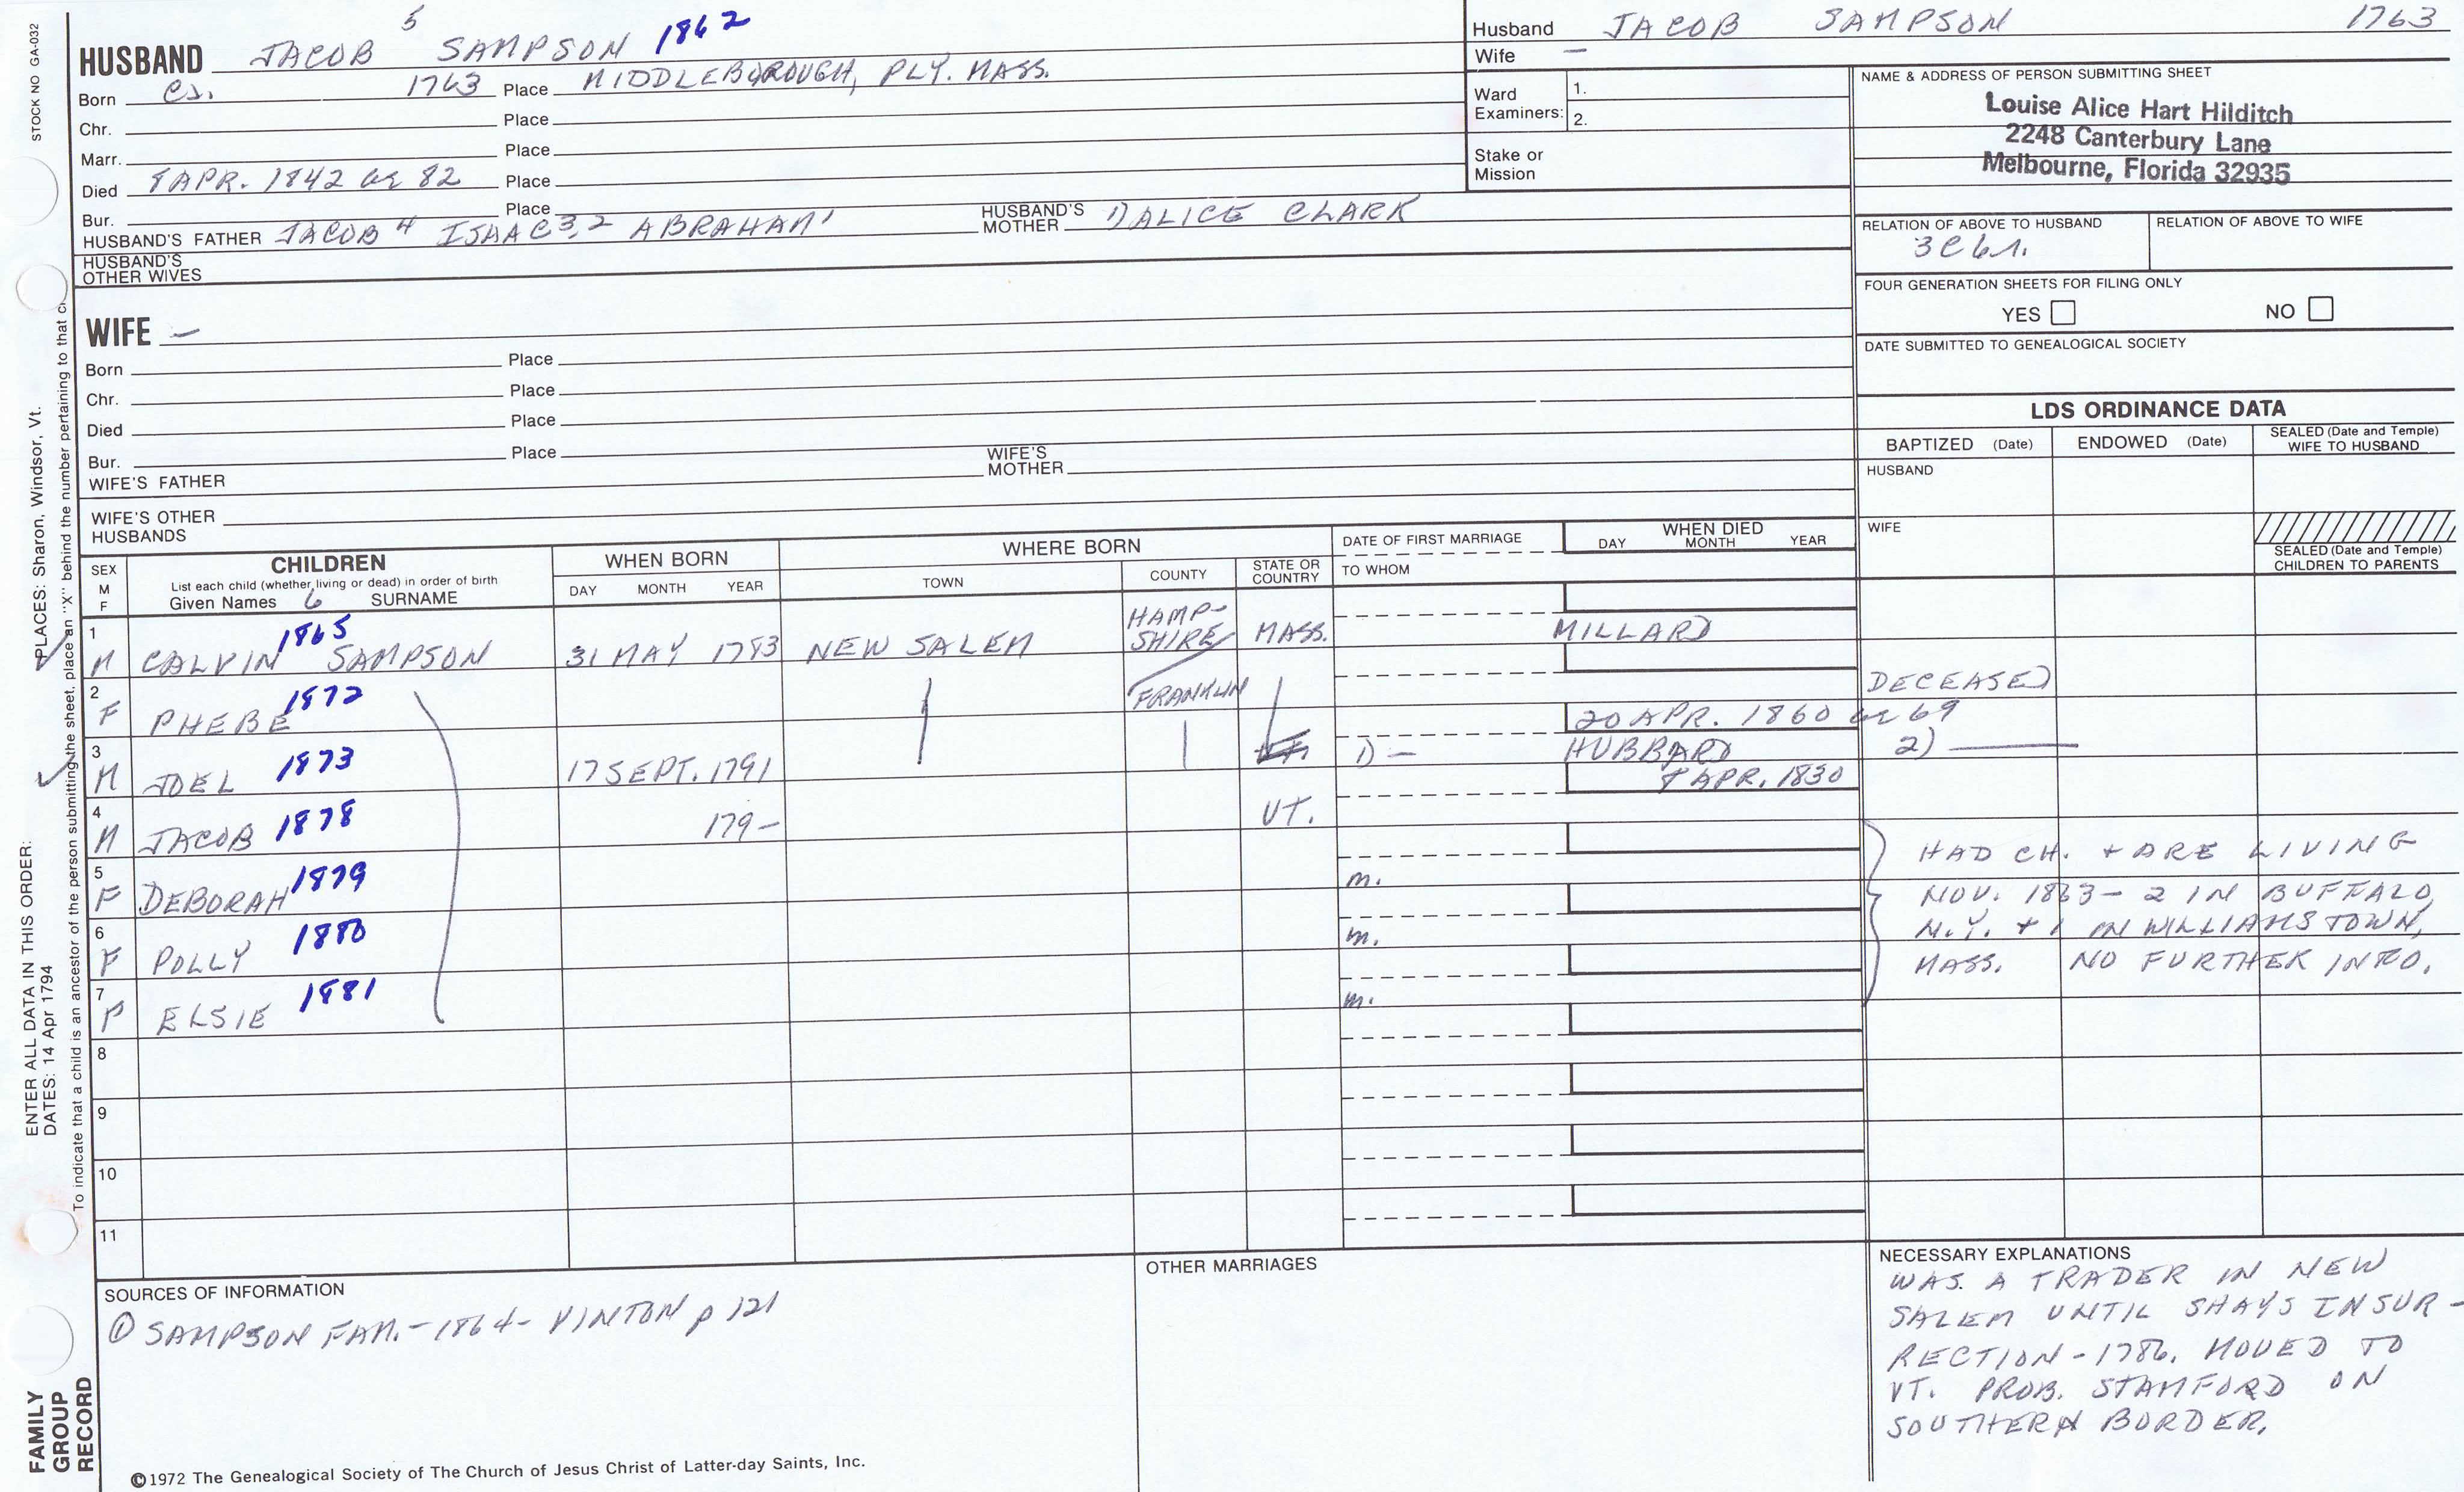 STOCK NO GA-032
HUSBAND JACOB 5 SAMPSON 1862
Born ca. 1763 Place MIDDLEBOROUGH, PLY. MASS.
Chr. Place
Marr. Place
Died 8 APR. 1842 ae 82 Place
Bur. Place
HUSBAND'S FATHER JACOB 4 ISAAC 3,2 ABRAHAM 1 HUSBAND'S MOTHER 1) ALICE CLARK
HUSBAND'S OTHER WIVES
Husband JACOB SAMPSON 1763
Wife —
Ward Examiners: 1.
2.
Stake or Mission
NAME & ADDRESS OF PERSON SUBMITTING SHEET
Louise Alice Hart Hilditch
2248 Canterbury Lane
Melbourne, Florida 32935
RELATION OF ABOVE TO HUSBAND
RELATION OF ABOVE TO WIFE
FOUR GENERATION SHEETS FOR FILING ONLY
YES NO
DATE SUBMITTED TO GENEALOGICAL SOCIETY
WIFE —
Born Place
Chr. Place
Died Place
Bur. Place
WIFE'S FATHER WIFE'S MOTHER
WIFE'S OTHER HUSBANDS
LDS ORDINANCE DATA
BAPTIZED (Date) ENDOWED (Date) SEALED (Date and Temple) WIFE TO HUSBAND
HUSBAND
WIFE
SEALED (Date and Temple) CHILDREN TO PARENTS
SEX M F
CHILDREN
List each child (whether living or dead) in order of birth
Given Names 6 SURNAME
WHEN BORN
DAY MONTH YEAR
WHERE BORN
TOWN COUNTY STATE OR COUNTRY
DATE OF FIRST MARRIAGE
TO WHOM
WHEN DIED
DAY MONTH YEAR
1 M CALVIN 1865 SAMPSON 31 MAY 1783 NEW SALEM HAMP-SHIRE/ MASS. MILLARD
2 F PHEBE 1872 FRANKLIN DECEASED
20 APR. 1860 ae 69
3 M JOEL 1873 17 SEPT. 1791 1) — HUBBARD 2) —
8 APR. 1830
4 M JACOB 1878 179— VT.
5 F DEBORAH 1879 m.
6 F POLLY 1880 m.
7 F ELSIE 1881 m.
HAD CH. + ARE LIVING
NOV. 1863 – 2 IN BUFFALO,
N.Y. + 1 IN WILLIAMSTOWN,
MASS. NO FURTHER INFO.
8
9
10
11
SOURCES OF INFORMATION
① SAMPSON FAM. – 1864 – VINTON p 121
OTHER MARRIAGES
NECESSARY EXPLANATIONS
WAS A TRADER IN NEW
SALEM UNTIL SHAYS INSUR-
RECTION – 1786. MOVED TO
VT. PROB. STAMFORD ON
SOUTHERN BORDER.
©1972 The Genealogical Society of The Church of Jesus Christ of Latter-day Saints, Inc.
FAMILY GROUP RECORD
ENTER ALL DATA IN THIS ORDER:
DATES: 14 Apr 1794
PLACES: Sharon, Windsor, Vt.
To indicate that a child is an ancestor of the person submitting the sheet, place an "X" behind the number pertaining to that